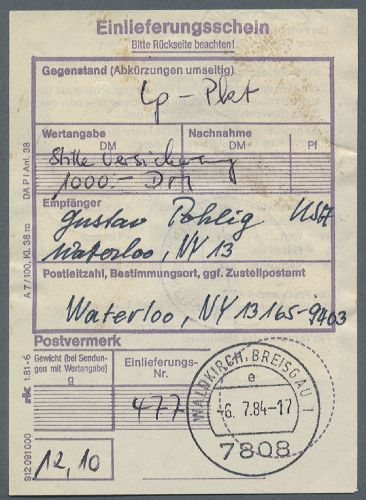 Einlieferungsschein
Bitte Rückseite beachten!
Gegenstand (Abkürzungen umseitig)
Lp - Pkt
Wertangabe
DM
Nachnahme
DM
Pf
Stille Versicherung
1000.- DM
Empfänger
Gustav Pohlig USA
Waterloo, NY 13
Postleitzahl, Bestimmungsort, ggf. Zustellpostamt
Waterloo, NY 13165-9403
Postvermerk
Gewicht (bei Sendun-
gen mit Wertangabe)
g
Einlieferungs-
Nr.
477
12,10
WALDKIRCH, BREISGAU 1
e
-6. 7.84-17
7808
DA P I Anl. 38
A 7/100, Kl. 36 ro
1.81-6
912 091 000